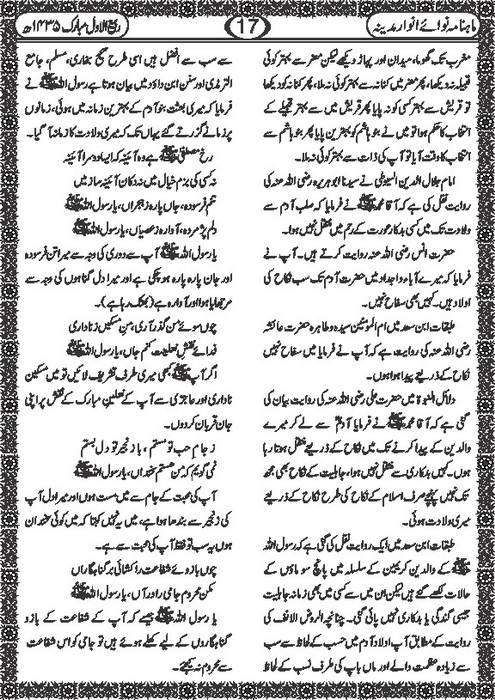 ماہنامہ نوائے انوار مدینہ
17
ربیع الاول مبارک ۱۴۳۵ھ
مغرب تک گھوما، میدان اور پہاڑ دیکھے لیکن مضر سے بہتر کوئی
قبیلہ نہ دیکھا، پھر مضر میں کنانہ سے بہتر کوئی نہ دیکھا، پھر کنانہ میں دیکھا
تو قریش سے بہتر کسی کو نہ پایا پھر قریش میں سے بہتر قبیلے کے
انتخاب کا حکم ہوا تو میں نے بنو ہاشم کو بہترین پایا پھر بنو ہاشم سے
انتخاب کا وقت آیا تو آپ کی ذات سے بہتر کوئی نہ ملا۔
امام جلال الدین السیوطی نے سیدنا ابوہریرہ رضی اللہ عنہ کی
روایت نقل کی ہے کہ آقا محمد ﷺ نے فرمایا کہ صلب آدم سے
ولادت تک میں کسی بدکار عورت کے رحم میں منتقل نہیں ہوا۔
حضرت انس رضی اللہ عنہ روایت کرتے ہیں۔ آپ نے
فرمایا کہ میرے آباء و اجداد میں حضرت آدم تک سب نکاح کی
اولاد ہیں۔ کہیں بھی سفاح نہیں۔
طبقات ابن سعد میں ام المؤمنین سیدہ و طاہرہ حضرت عائشہ
رضی اللہ عنہ کی روایت ہے کہ آپ نے فرمایا میں سفاح نہیں
نکاح کے ذریعے پیدا ہوا ہوں۔
دلائل النبوۃ میں حضرت علی رضی اللہ عنہ کی روایت بیان کی
گئی ہے کہ آقا محمد ﷺ نے فرمایا آدم سے لے کر میرے
والدین کے پیدا کرنے تک میں نکاح کے ذریعے منتقل ہوتا رہا
ہوں۔ کہیں بدکاری سے منتقل نہیں ہوا، جاہلیت کے نکاح بھی مجھ
تک نہیں پہنچے صرف اسلام کے نکاح کی طرح نکاح کے ذریعے
میری ولادت ہوئی۔
طبقات ابن سعد میں ایک روایت نقل کی گئی ہے کہ رسول اللہ
ﷺ کے والدین کریمین کے سلسلہ میں پانچ سو ماؤں کے
حالات لکھے گئے ہیں لیکن ان میں سے کسی میں بھی زمانہ جاہلیت
جیسی گندگی یا بدکاری نہیں پائی گئی۔ چنانچہ الروض الانف کی
روایت کے مطابق آپ اولاد آدم میں حسب کے لحاظ سے سب
سے زیادہ عظمت والے اور ماں باپ کی طرف نسب کے لحاظ
سے سب سے افضل ہیں اسی طرح صحیح بخاری، مسلم، جامع
الترمذی اور سنن ابن داؤد میں بیان ہوتا ہے رسول اللہ ﷺ نے
فرمایا کہ میری بعثت بنو آدم کے بہترین زمانہ میں ہوئی، زمانوں
پر زمانے گزرتے گئے یہاں تک کہ میری ولادت کا زمانہ آ گیا۔
رخ مصطفی ﷺ ہے وہ آئینہ کہ ایسا دوسرا آئینہ
نہ کسی کی بزم خیال میں نہ دکان آئینہ ساز میں
تنم فرسودہ، جاں پارہ ز ہجراں، یارسول اللہ ﷺ
دلم پژمردہ، آوارہ ز عصیاں، یارسول اللہ ﷺ
(یارسول اللہ ﷺ آپ سے دوری کی وجہ سے میرا تن فرسودہ
اور جان پارہ پارہ ہو چکی ہے اور میرا دل گناہوں کی وجہ سے
مرجھایا ہوا اور آوارہ ہے (بھٹک رہا ہے)۔
چوں سوئے من گذر آری، من مسکیں ز ناداری
فدائے نقش نعلینت کنم جاں، یارسول اللہ ﷺ
اگر آپ ﷺ کبھی میری طرف تشریف لائیں تو میں مسکین
ناداری اور عاجزی سے آپ کے نعلین مبارک کے نقش پر اپنی
جان قربان کر دوں۔
ز جام حب تو مستم، با زنجیر تو دل بستم
نمی گویم کہ من ہستم سخنداں، یارسول اللہ ﷺ
آپ کی محبت کے جام سے میں مست ہوں اور میرا دل آپ
کی زنجیر سے بندھا ہوا ہے، میں یہ نہیں کہتا کہ میں کوئی سخندان
ہوں یہ سب تو فقط آپ کی محبت ہے۔
چوں بازوئے شفاعت را کشائی بر گناہگاراں
مکن محروم جامی را در آں، یارسول اللہ ﷺ
یارسول ﷺ جیسے کہ آپ کے شفاعت کے بازو
گناہگاروں کے لیے کھلے ہوئے ہیں تو جامی کو اس شفاعت
سے محروم نہ کیجئے۔